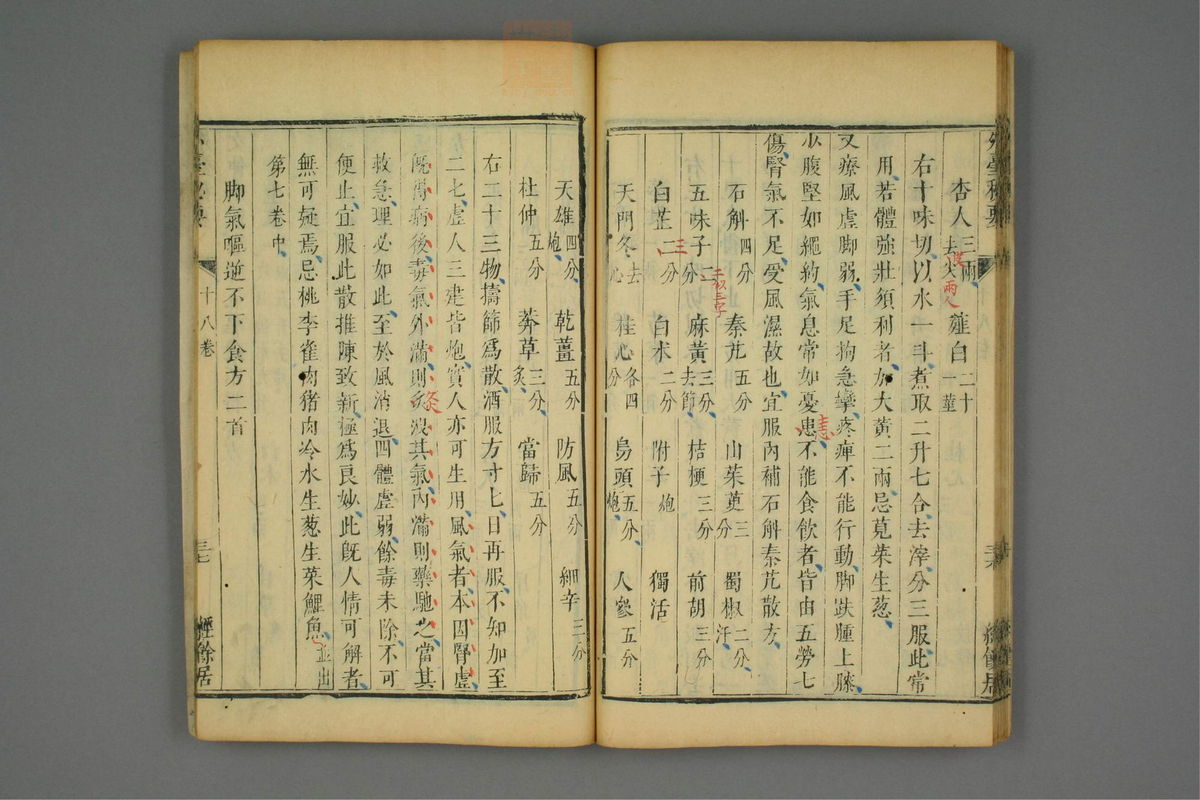 外臺秘要
杏人三兩去尖皮兩人 薤白二十一莖
右十味切以水一斗煮取二升七合去滓分三服此常
用若體強壯須利者加大黃二兩忌莧菜生蔥
又療風虛脚弱手足拘急攣疼痺不能行動脚趺腫上膝
小腹堅如繩約氣息常如憂患不能食飲者皆由五勞七
傷腎氣不足受風濕故也宜服內補石斛秦艽散方
石斛四分 秦艽五分 山茱萸三分 蜀椒二分汗
五味子二分 麻黃三分去節 桔梗三分 前胡三分
白芷二分 白朮二分 附子炮 獨活
天門冬去心 桂心各四分 烏頭五分炮 人參五分
三
二似三字
恚
經餘居
天雄四分炮 乾薑五分 防風五分 細辛三分
杜仲五分 莽草三分炙 當歸五分
右二十三物擣篩為散酒服方寸匕日再服不知加至
二匕虛人三建皆炮實人亦可生用風氣者本因腎虛
既得病後毒氣外滿則灸洩其氣內滿則藥馳之當其
救急理必如此至於風消退四體虛弱餘毒未除不可
便止宜服此散推陳致新極為良妙此既人情可解者
無可疑焉忌桃李雀肉猪肉冷水生蔥生菜鯉魚並出
第七卷中
脚氣嘔逆不下食方二首
灸
外臺秘要
十八卷
三七
經餘居